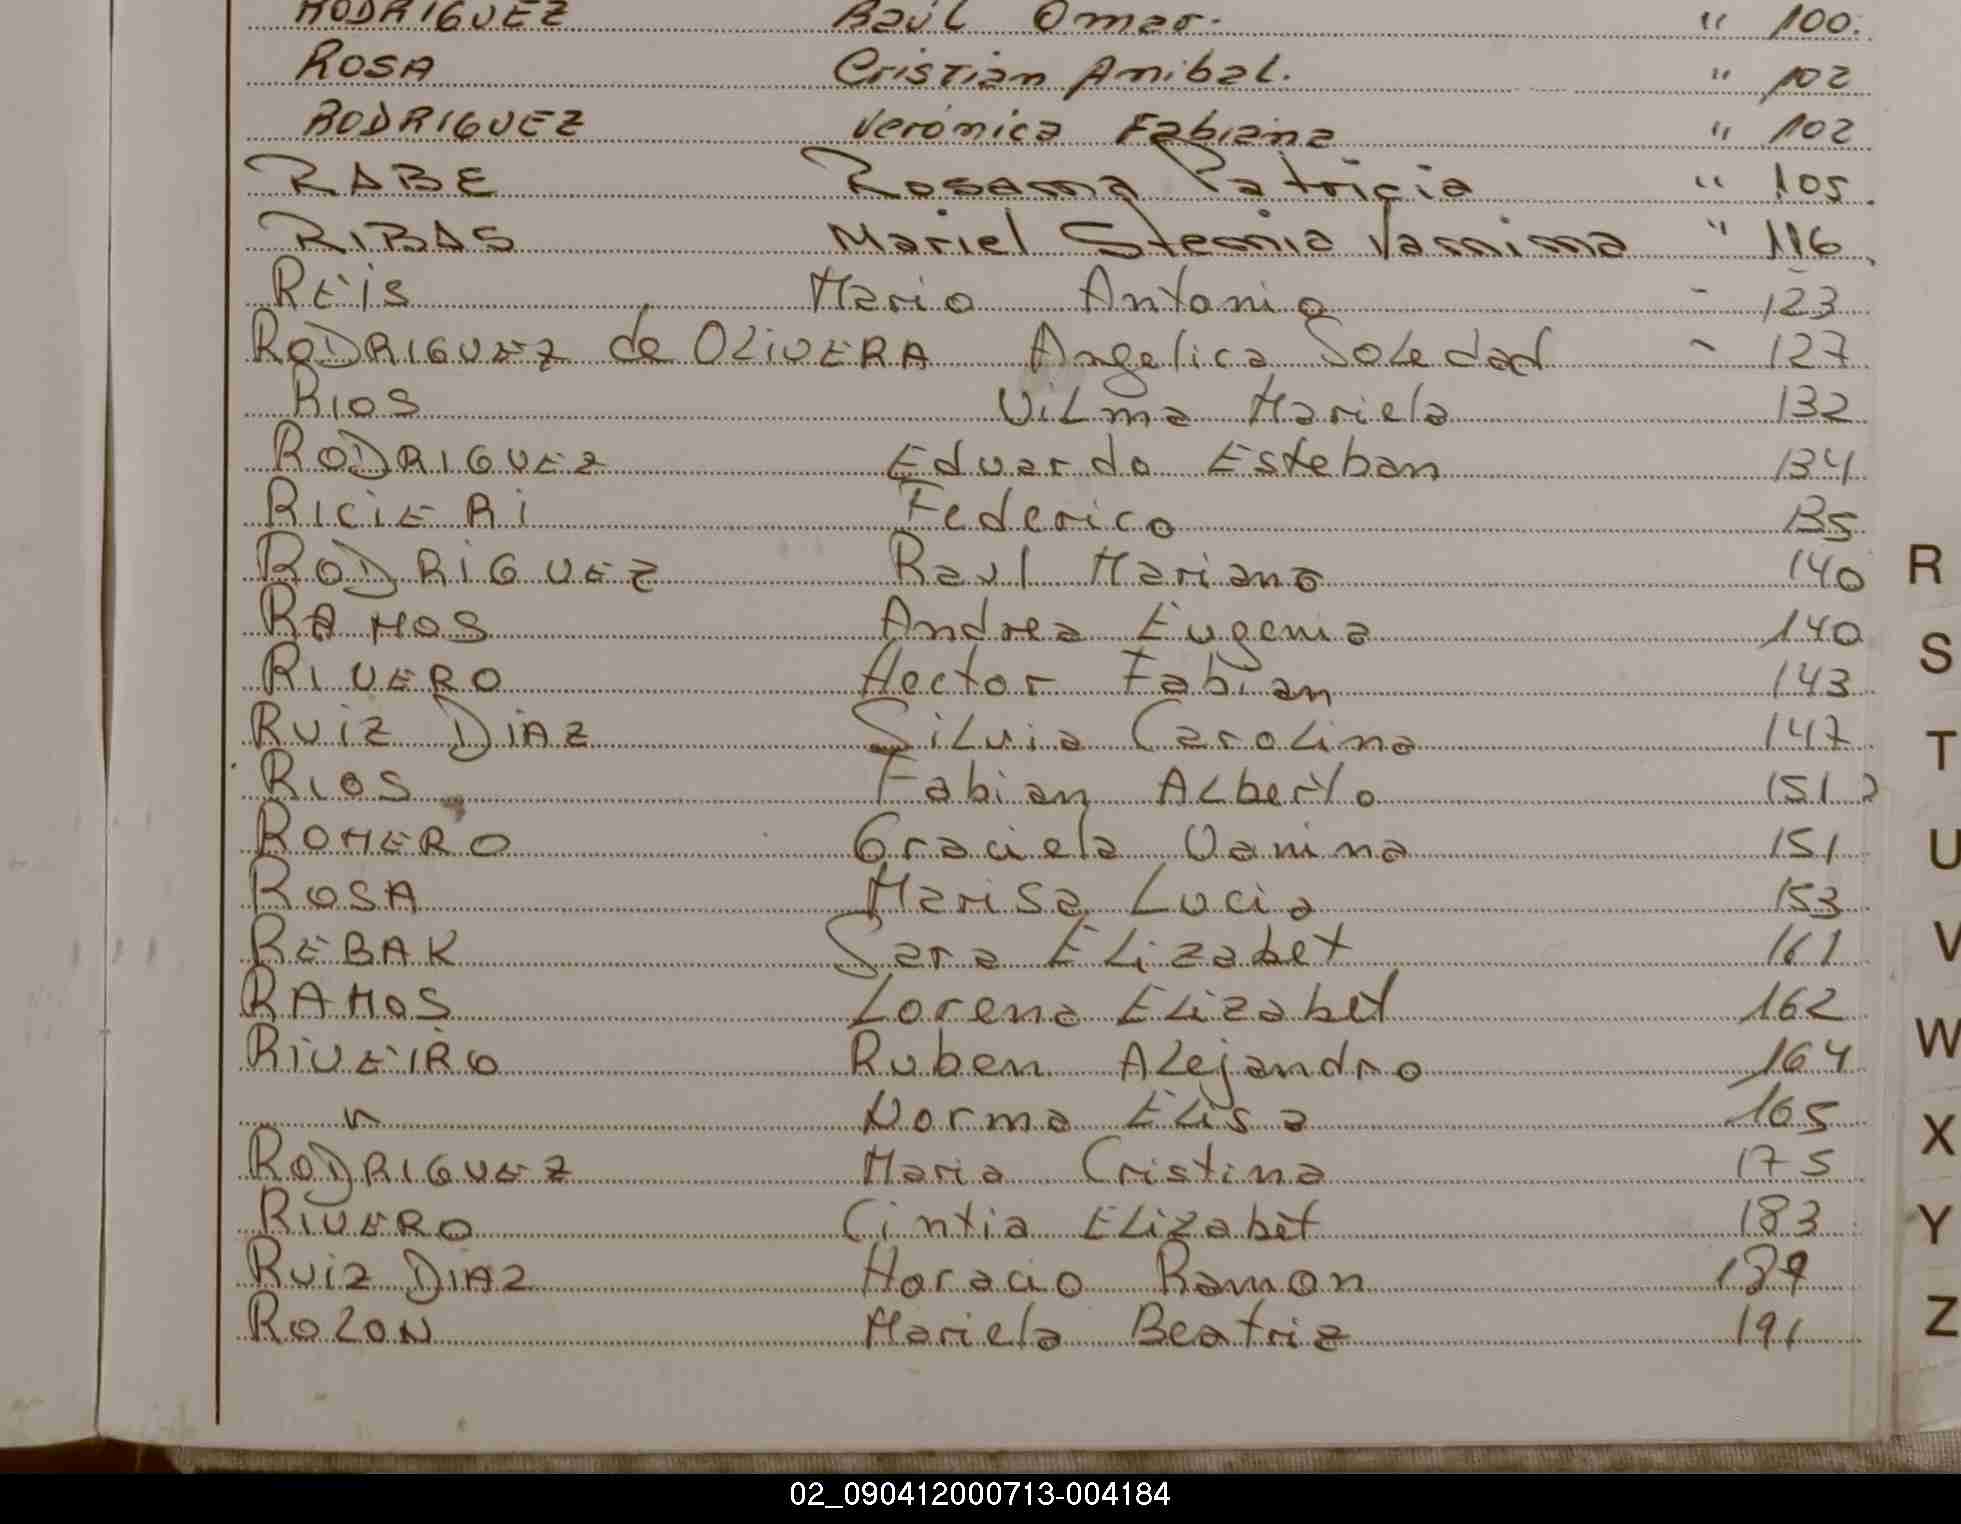 RODRIGUEZ Raúl Omar. " 100.
ROSA Cristian Anibal. " 102
RODRIGUEZ Verónica Fabiana " 102
RABE Rosanna Patricia " 105.
RIBAS Mariel Stemia Vannina " 116.
REiS Mario Antonio - 123
RODRIGUEZ de OLIVERA Angelica Soledad - 127
RIOS Vilma Mariela 132
RODRIGUEZ Eduardo Esteban 134
RICiERi Federico 135
RODRIGUEZ Raul Mariano 140
RAMOS Andrea Eugenia 140
RIVERO Hector Fabian 143
RUIZ DIAZ Silvia Carolina 147
RIOS Fabian Alberto 151
ROMERO Graciela Vanina 151
ROSA Marisa Lucia 153
REBAK Sara Elizabet 161
RAMOS Lorena Elizabet 162
RIVEIRO Ruben Alejandro 164
" Norma Elisa 165
RODRIGUEZ Maria Cristina 175
RIVERO Cintia Elizabet 183
RUIZ DIAZ Horacio Ramon 189
ROLON Mariela Beatriz 191
R
S
T
U
V
W
X
Y
Z
02_090412000713-004184